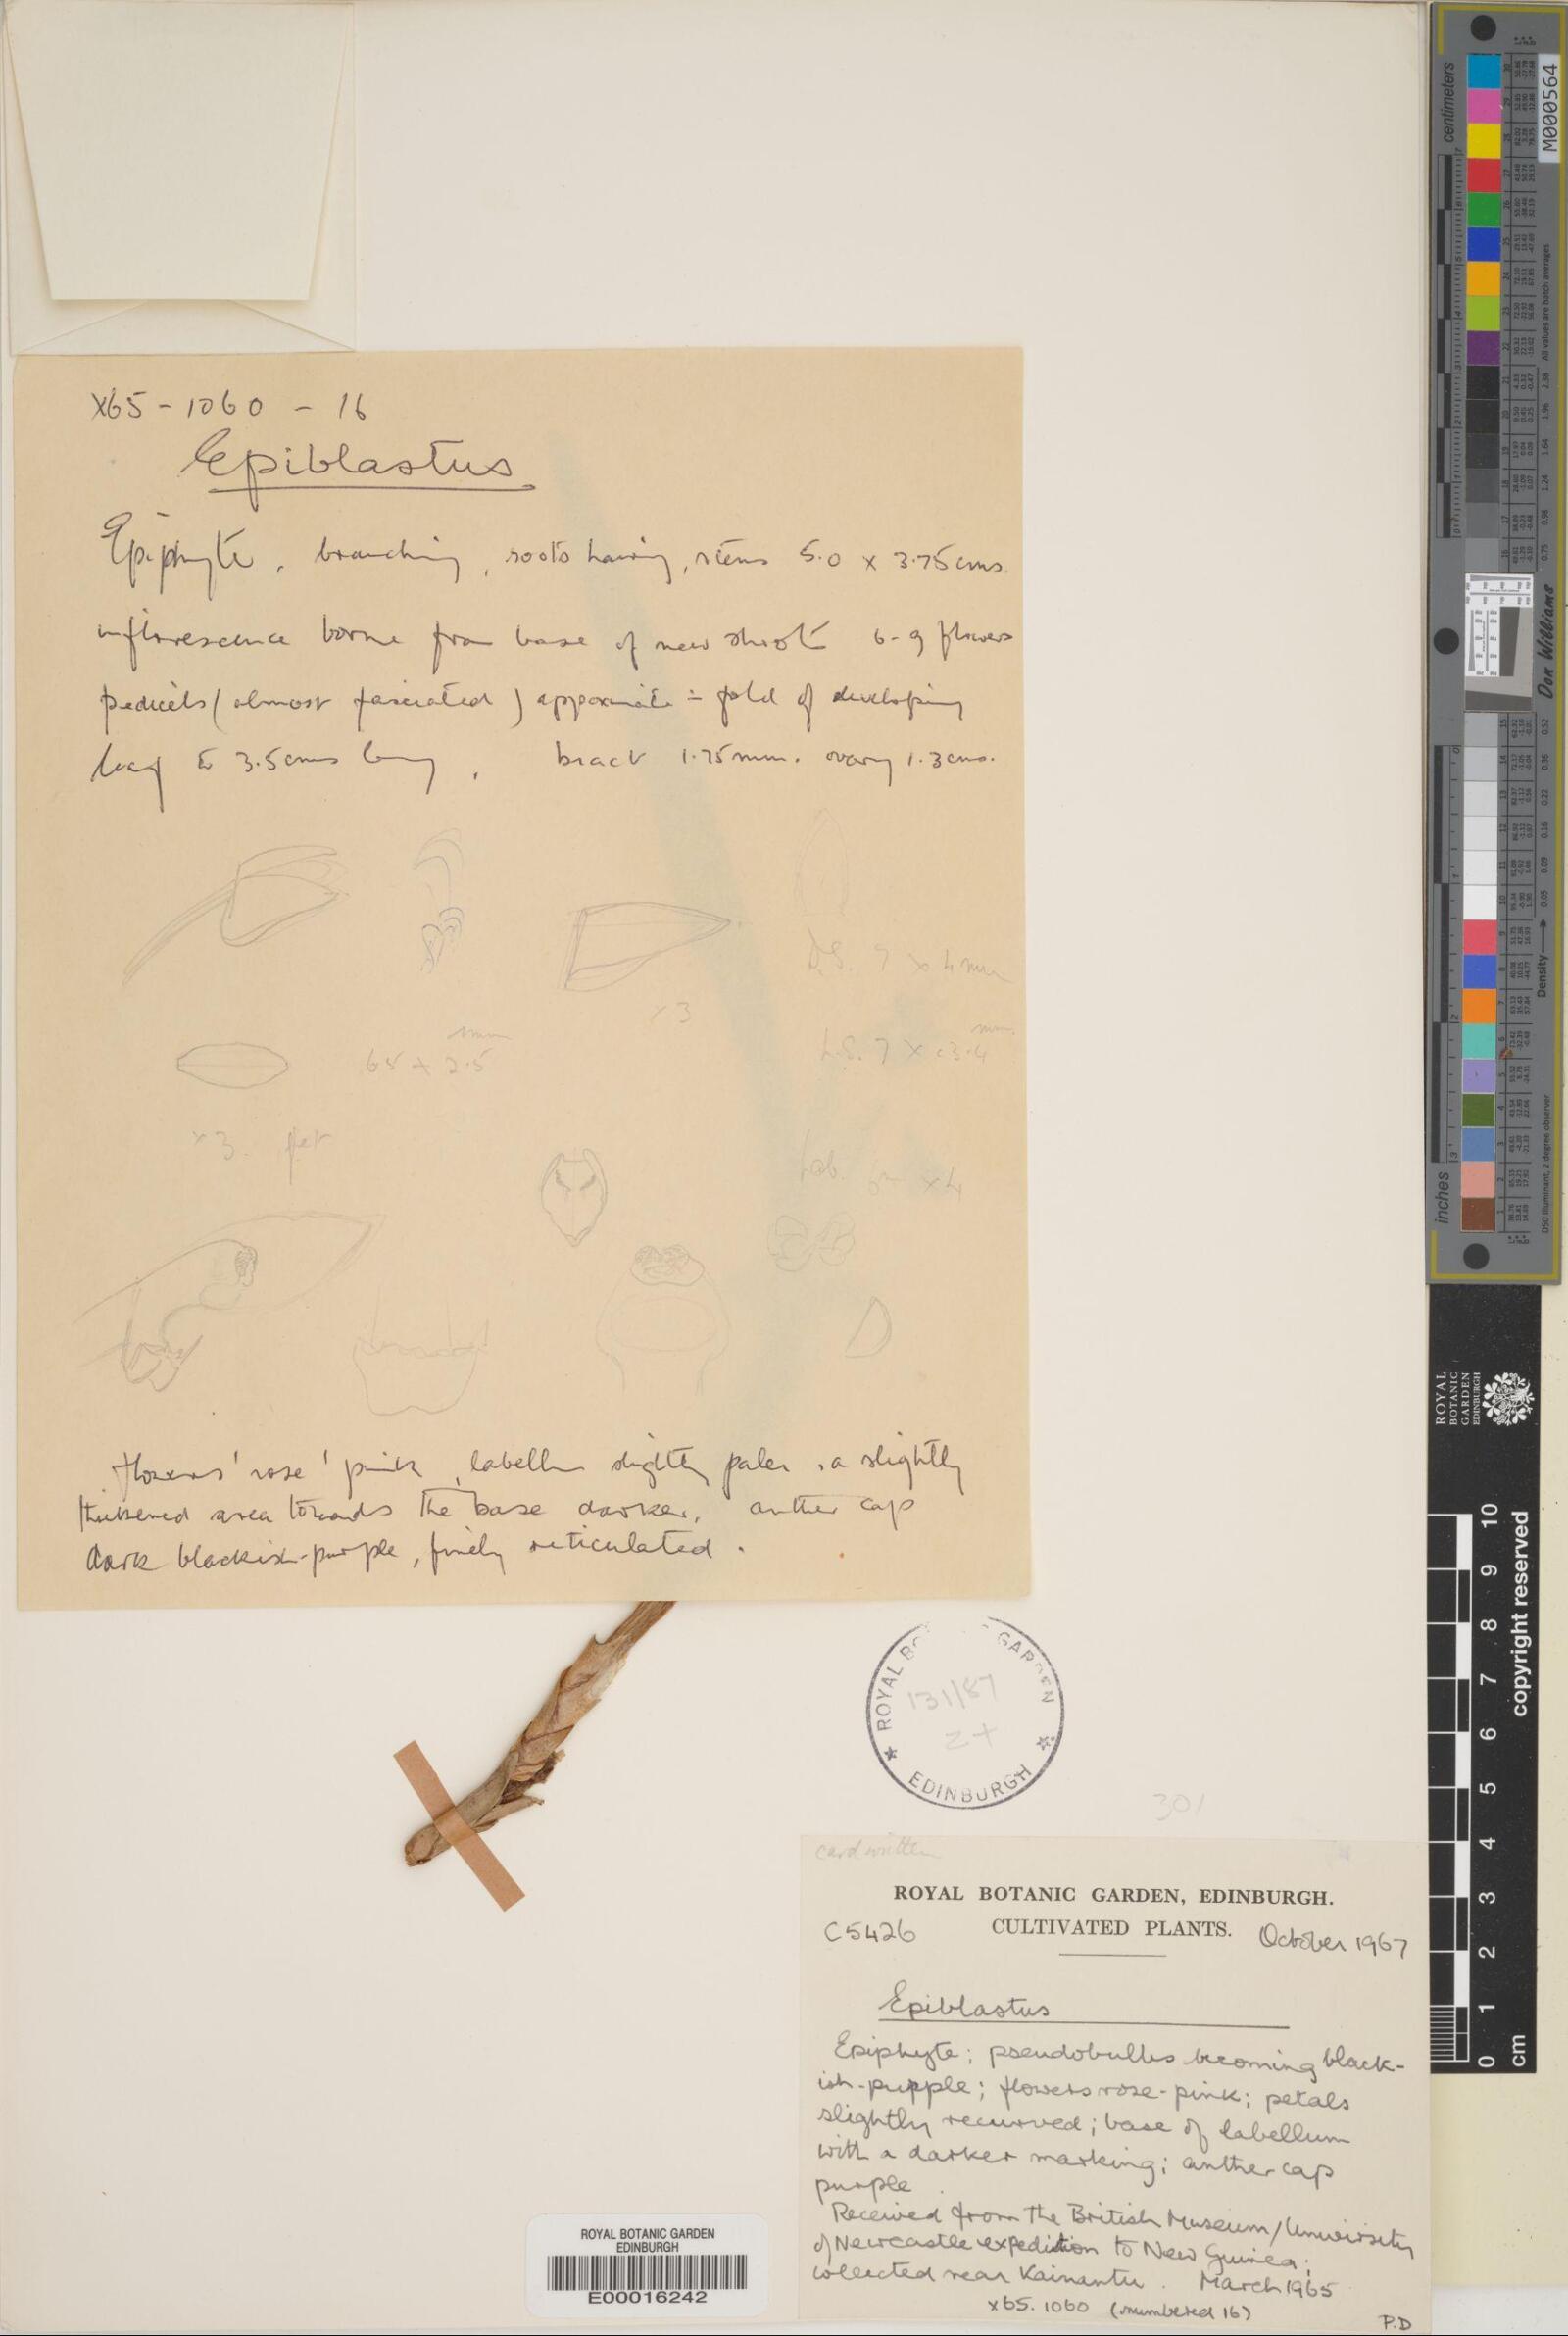 X65 - 1060 - 16
Epiblastus
Epiphyte, branching, roots hairy, stems 5.0 x 3.75cms.
inflorescence borne from base of new shoot 6-9 flowers
pedicels (almost fasciated) approximate = fold of developing
leaf to 3.5cms long, bract 1.75mm. ovary 1.3cms.
D.S. 7 x 4mm
x3
65 x 2.5 mm
L.S. 7 x 3.4 mm
x3. pet
Lab x4
flowers 'rose' pink, labellum slightly paler, a slightly
thickened area towards the base darker, anther cap
dark blackish-purple, finely reticulated.
ROYAL BOTANIC GARDEN
131/87
2+
EDINBURGH
301
card written
ROYAL BOTANIC GARDEN, EDINBURGH.
C5426 CULTIVATED PLANTS. October 1967
Epiblastus
Epiphyte; pseudobulbs becoming black-
ish-purple; flowers rose-pink; petals
slightly recurved; base of labellum
with a darker marking; anther cap
purple
Received from the British Museum/University
of Newcastle expedition to New Guinea;
collected near Kainantu. March 1965
x65.1060 (numbered 16)
P.D
ROYAL BOTANIC GARDEN
EDINBURGH
E00016242
centimeters
M000564
All values are batch averages
Don Williams
Density
inches
D50 Illuminant, 2 degree observer
ROYAL
BOTANIC
GARDEN
EDINBURGH
copyright reserved
0 1 2 3 4 5 6 7 8 9 10
cm